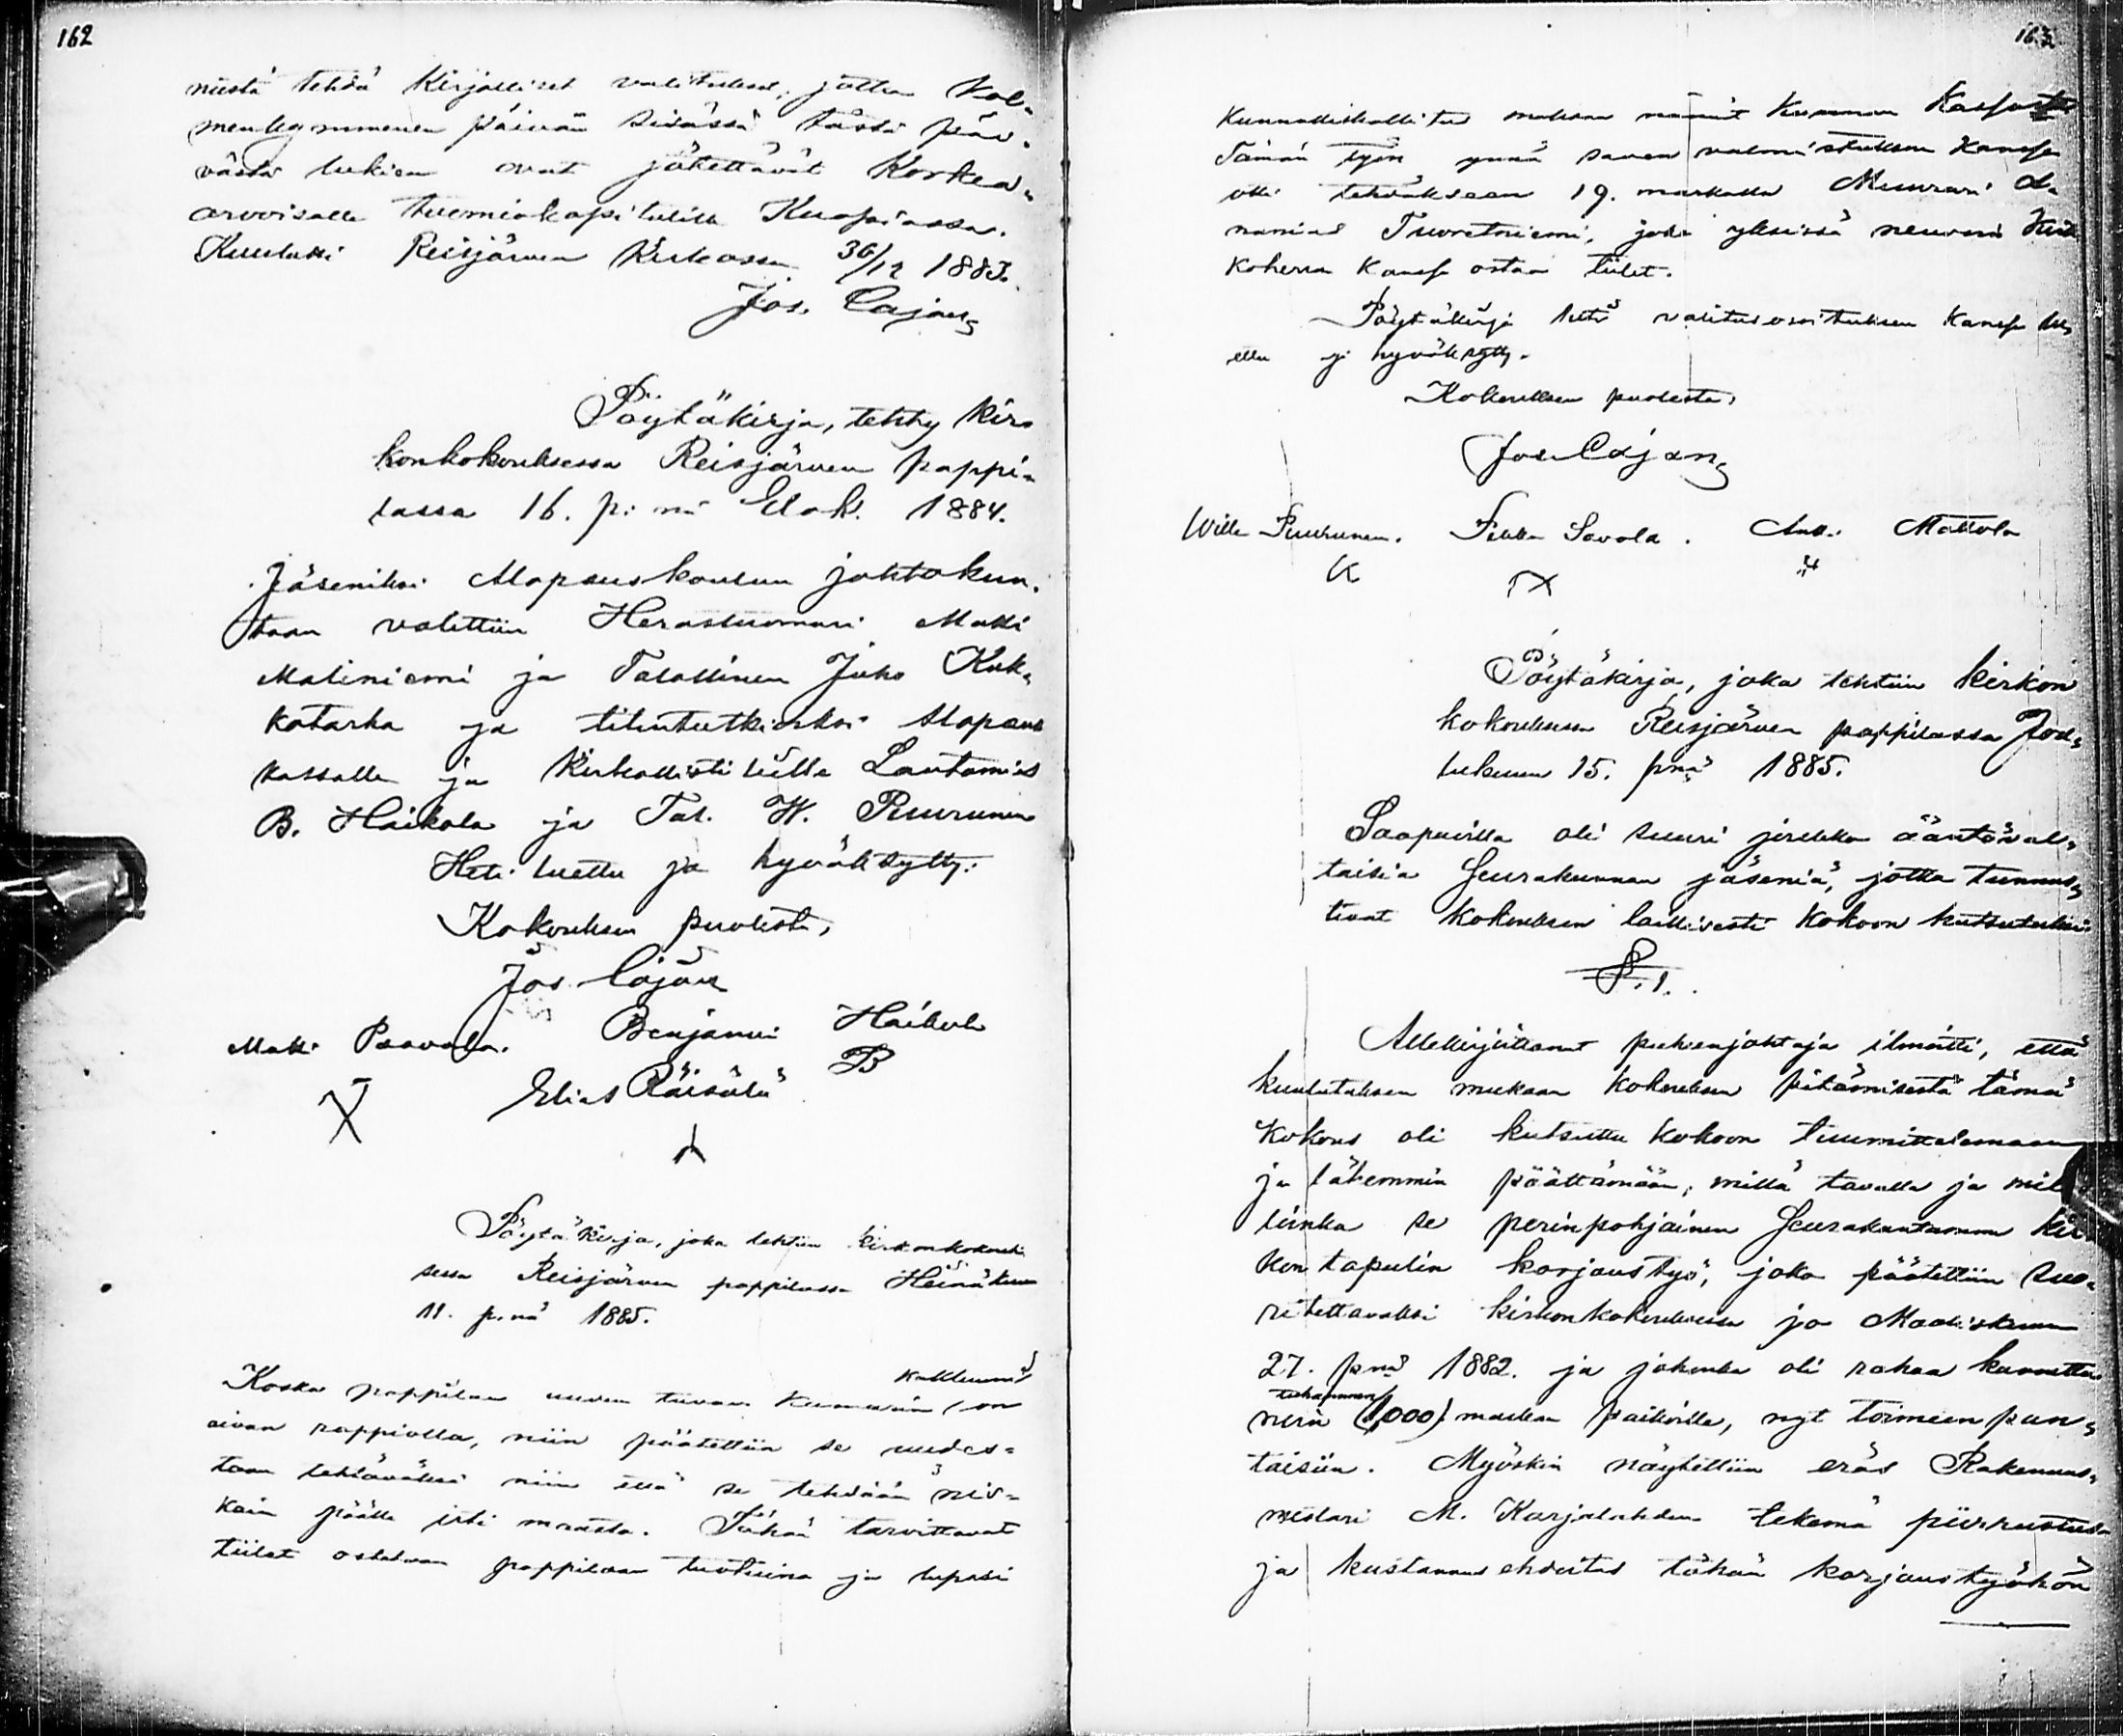 162
niistä tehdä kirjalliset valitukset, jotka kol-
menkymmenen päivän sisässä tästä päi-
västä lukien ovat jätettävät Korkea-
arvoisalle tuomiokapitulille Kuopiossa.
Kuulutti Reisjärven kirkossa 30/12 1883.
Jos. Cajan
Pöytäkirja, tehty kir-
konkokouksessa Reisjärven pappi-
lassa 16. p:nä Elok. 1884.
Jäseniksi Alapauskoulun johtokun-
taan valittiin Herastuomari Matti
Matiniemi ja Talollinen Juho Kuk-
kotarha ja tilintutkioiksi
kassalle ja Kirkollistilille Lautamies
B. Haikola ja Tal. W. Puurunen
Heti luettu ja hyväksytty:
Kokouksen puolesta,
Jos. Cajan
Matti Paavola. Benjamin Haikola
Elias Räisälä B
X
Pöytäkirja, joka tehtiin kirkonkokouk-
sessa Reisjärven pappilassa Heinäkuun
11. p.nä 1885.
Koska pappilan uuden tuvan on
aivan rappiolla, niin päätettiin se uudes-
taan tehtäväksi niin että se tehdään
päälle irti maasta. Tähän tarvittavat
tiilet ostetaan pappilaan tuotuina ja lupasi
163
Kunnallishallitus maksaa nämät Kunnan Kassasta
Tämän työn ynnä saven valmistuksen kanssa
otti tehdäkseen 19. markalla Muurari A-
nanias Tuoretniemi, joka yksissä neuvoin Kirk-
koherran kanssa ostaa tiilet.
Pöytäkirja tästä valitusosoituksen kanssa lu-
ettu ja hyväksytty.
Kokouksen puolesta,
Jos. Cajan
Wille Puurunen. Pekka Savola. Antti Mattola
Pöytäkirja, joka tehtiin kirkon
kokouksessa Reisjärven pappilassa Jou-
lukuun 15. pnä 1885.
Saapuvilla oli suuri joukko ääntöval-
taisia Seurakunnan jäseniä, jotka tunnus-
tivat kokouksen laillisesti kokoon kutsutuksi.
§. 1.
Allekirjoittanut puheenjohtaja ilmoitti, että
kuulutuksen mukaan kokouksen pitämisestä tämä
kokous oli kutsuttu kokoon tuumittelemaan
ja lähemmin päättämään, millä tavalla ja mil-
loinka se perinpohjainen Seurakuntamme kir-
kon tapulin korjaustyö, joka päätettiin suo-
ritettavaksi kirkonkokouksessa jo Maaliskuun
27. pnä 1882. ja johonka oli rahaa koottu
tuhannen
noin (1,000) markan paikoille, nyt toimeen pan-
taisiin. Myöskin näytettiin eräs Rakennus-
mestari M. Karjalahden tekemä piirustus
ja kustannusehdoitus tähän korjaustyöhön